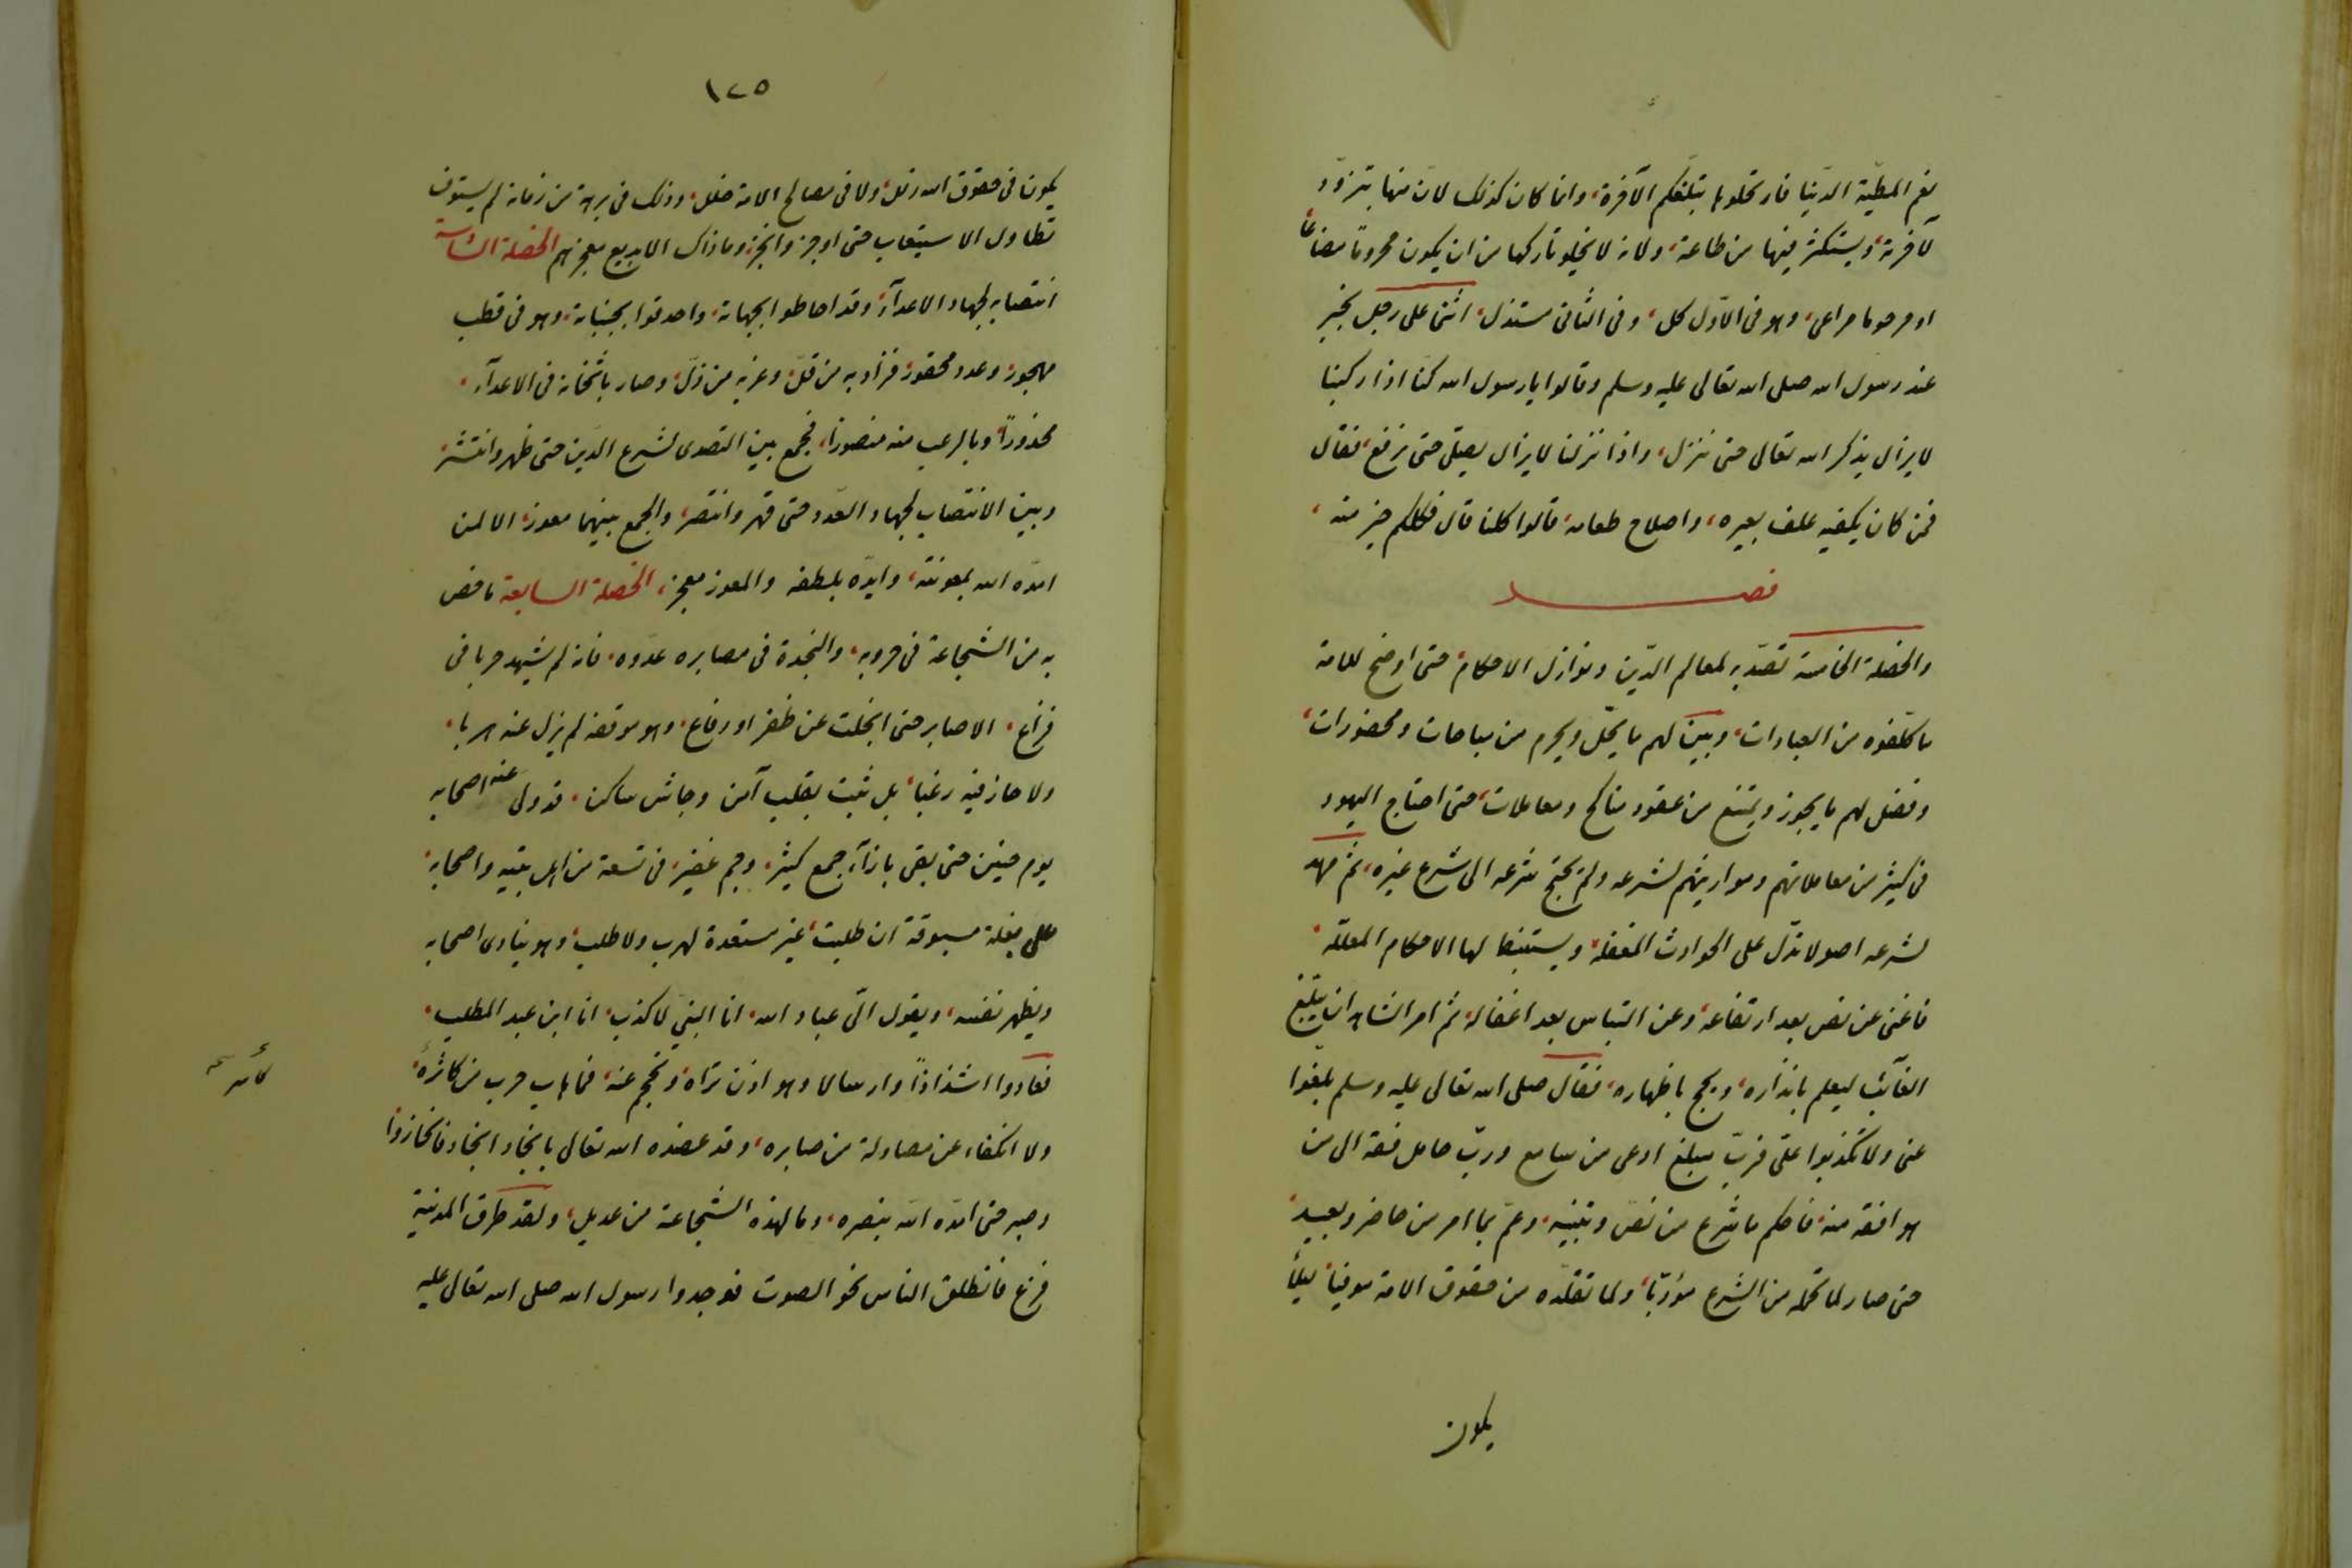 نعم المطيّة الدّنيا فارتحلوها تبلّغكم الآخرة، وانما كان كذلك لانّ منها يتزوّد
لآخرته، ويستكثر فيها من طاعة، ولانه لا يخلو تاركها من ان يكون محروما مضاعا
او مرحوما مراعى، وهو فى الاوّل كل، وفى الثانى مستذل، اثنى على رجل بخير
عند رسول الله صلى الله تعالى عليه وسلم وقالوا يا رسول الله كنّا اذا ركبنا
لا يزال يذكر الله تعالى حتى ننزل، واذا نزلنا لا يزال يصلّى حتى نرفع، فقال
فمن كان يكفيه علف بعيره، واصلاح طعامه، قالوا كلنا قال فكلكم خير منه،
فصل
والخصلة الخامسة تصدّيه لمعالم الدّين ونوازل الاحكام، حتى اوضح للامة
ما كلّفوه من العبادات، وبيّن لهم ما يحلّ ويحرم من مباحات ومحضورات،
وفصّل لهم ما يجوز ويمتنع من عقود مناكح ومعاملات، حتى احتاج اليهود
فى كثير من معاملاتهم ومواريثهم لشرعه ولم يحتج شرعه الى شرع غيره، ثم مهد
لشرعه اصولا تدّل على الحوادث المغفلة، ويستنبط لها الاحكام المعلّلة،
فاغنى عن نص بعد ارتفاعه، وعن التباس بعد اغفاله، ثم امر الشاهد ان يبلّغ
الغآئب ليعلم بانذاره، ويحج باظهاره، فقال صلى الله تعالى عليه وسلم بلغوا
عنى ولا تكذبوا علىّ فربّ مبلغ اوعى من سامع وربّ حامل فقه الى من
هو افقه منه، فاحكم ما شرع من نصّ وتنبيه، وعمّ بما امر من حاضر وبعيد،
حتى صار لما تحمّله من الشرع مؤديّا، ولما تقلّده من حقوق الامة موفيا، ليلّا
يكون
١٢٥
يكون فى حقوق الله زلل، ولا فى مصالح الامة خلل، وذلك فى برهة من زمانه لم يستوف
تطاول الاستيعاب حتى اوجز وانجز، وما ذاك الا بديع معجز نهم الخصلة السّادسة
انتصابه لجهاد الاعدآء، وقد احاطوا بجهاته، واحدقوا بجنباته، وهو فى قطب
مهجور، وعدد محقور، فزاد به من قلّ، وعز به من ذلّ، وصار باثخانه فى الاعدآء،
محذوراً، وبالرعب منه منصورا، فجمع بين التصدى لشرع الدّين حتى ظهر وانتشر،
وبين الانتصاب لجهاد العدّو حتى قهر وانتصر، والجمع بينهما معوز، الا لمن
امدّه الله بمعونته، وايدّه بلطفه والمعوز معجز، الخصلة السابعة ما خص
به من الشجاعة فى حروبه، والنجدة فى مصابره عدّوه، فانه لم يشهد حربا فى
فزاع، الا صابر حتى انجلت عن ظفر او دفاع، وهو موقفه لم يزل عنه هربا،
ولا حاز فيه رغبا، بل ثبت بقلب آمن وجاش ساكن، قد ولى عنه اصحابه
يوم حنين حتى بقى بازآء جمع كثير، وجم غفير، فى تسعة من اهل بيته واصحابه،
على بغلة مسبوقة ان طلبت، غير مستعدة لهرب ولا طلب، وهو ينادى اصحابه
ويظهر نفسه، ويقول الىّ عباد الله، انا النبى لا كذب، انا ابن عبد المطلب،
فعادوا اشذاذاً وارسالا وهو ازن تراه، وتحجم عنه، فما هاب حرب من كاثره،
ولا انكفاء عن مصاولة من صابره، وقد عضده الله تعالى بانجاد انجاد فانحازوا
وصبر حتى امدّه اللّه بنصره، وما لهذه الشجاعة من عديل، ولقد طرق المدينة
فزع فانطلق الناس نحو الصوت فوجدوا رسول الله صلى الله تعالى عليه